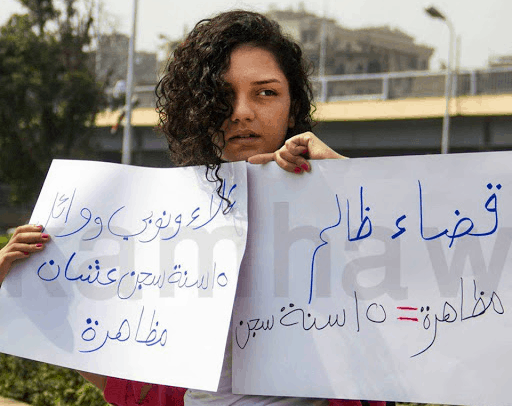 علاء ونوبي ووائل
١٥ سنة سجن عشان
مظاهرة
قضاء ظالم
مظاهرة = ١٥ سنة سجن
amhaw